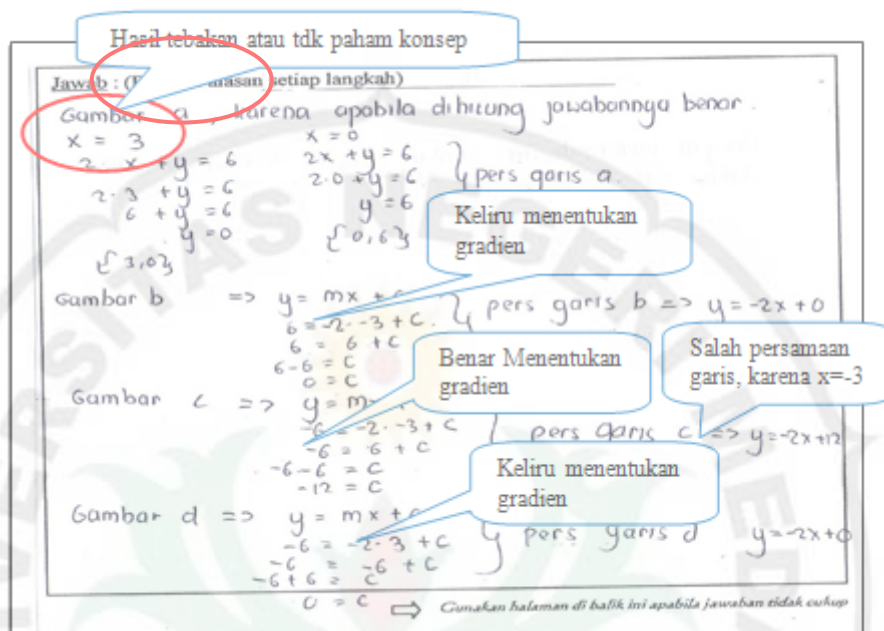 Hasil tebakan atau tdk paham konsep
Jawab : ( alasan setiap langkah)
Gambar a, karena apabila dihitung jawabannya benar.
x = 3
2 . x + y = 6
2 . 3 + y = 6
6 + y = 6
y = 0
{3,0}
x = 0
2x + y = 6
2.0 + y = 6
y = 6
{0,6}
pers garis a.
Keliru menentukan
gradien
Gambar b => y = mx +
6 = -2 . -3 + C.
6 = 6 + C
6 - 6 = C
0 = C
pers garis b => y = -2x + 0
Benar Menentukan
gradien
Salah persamaan
garis, karena x=-3
Gambar c => y = m
-6 = -2 . -3 + C
-6 = 6 + C
-6 - 6 = C
-12 = C
pers garis c => y = -2x + 12
Keliru menentukan
gradien
Gambar d => y = mx +
-6 = -2 . 3 + C
-6 = -6 + C
-6 + 6 = C
0 = C
pers garis d y = -2x + 0
Gunakan halaman di balik ini apabila jawaban tidak cukup